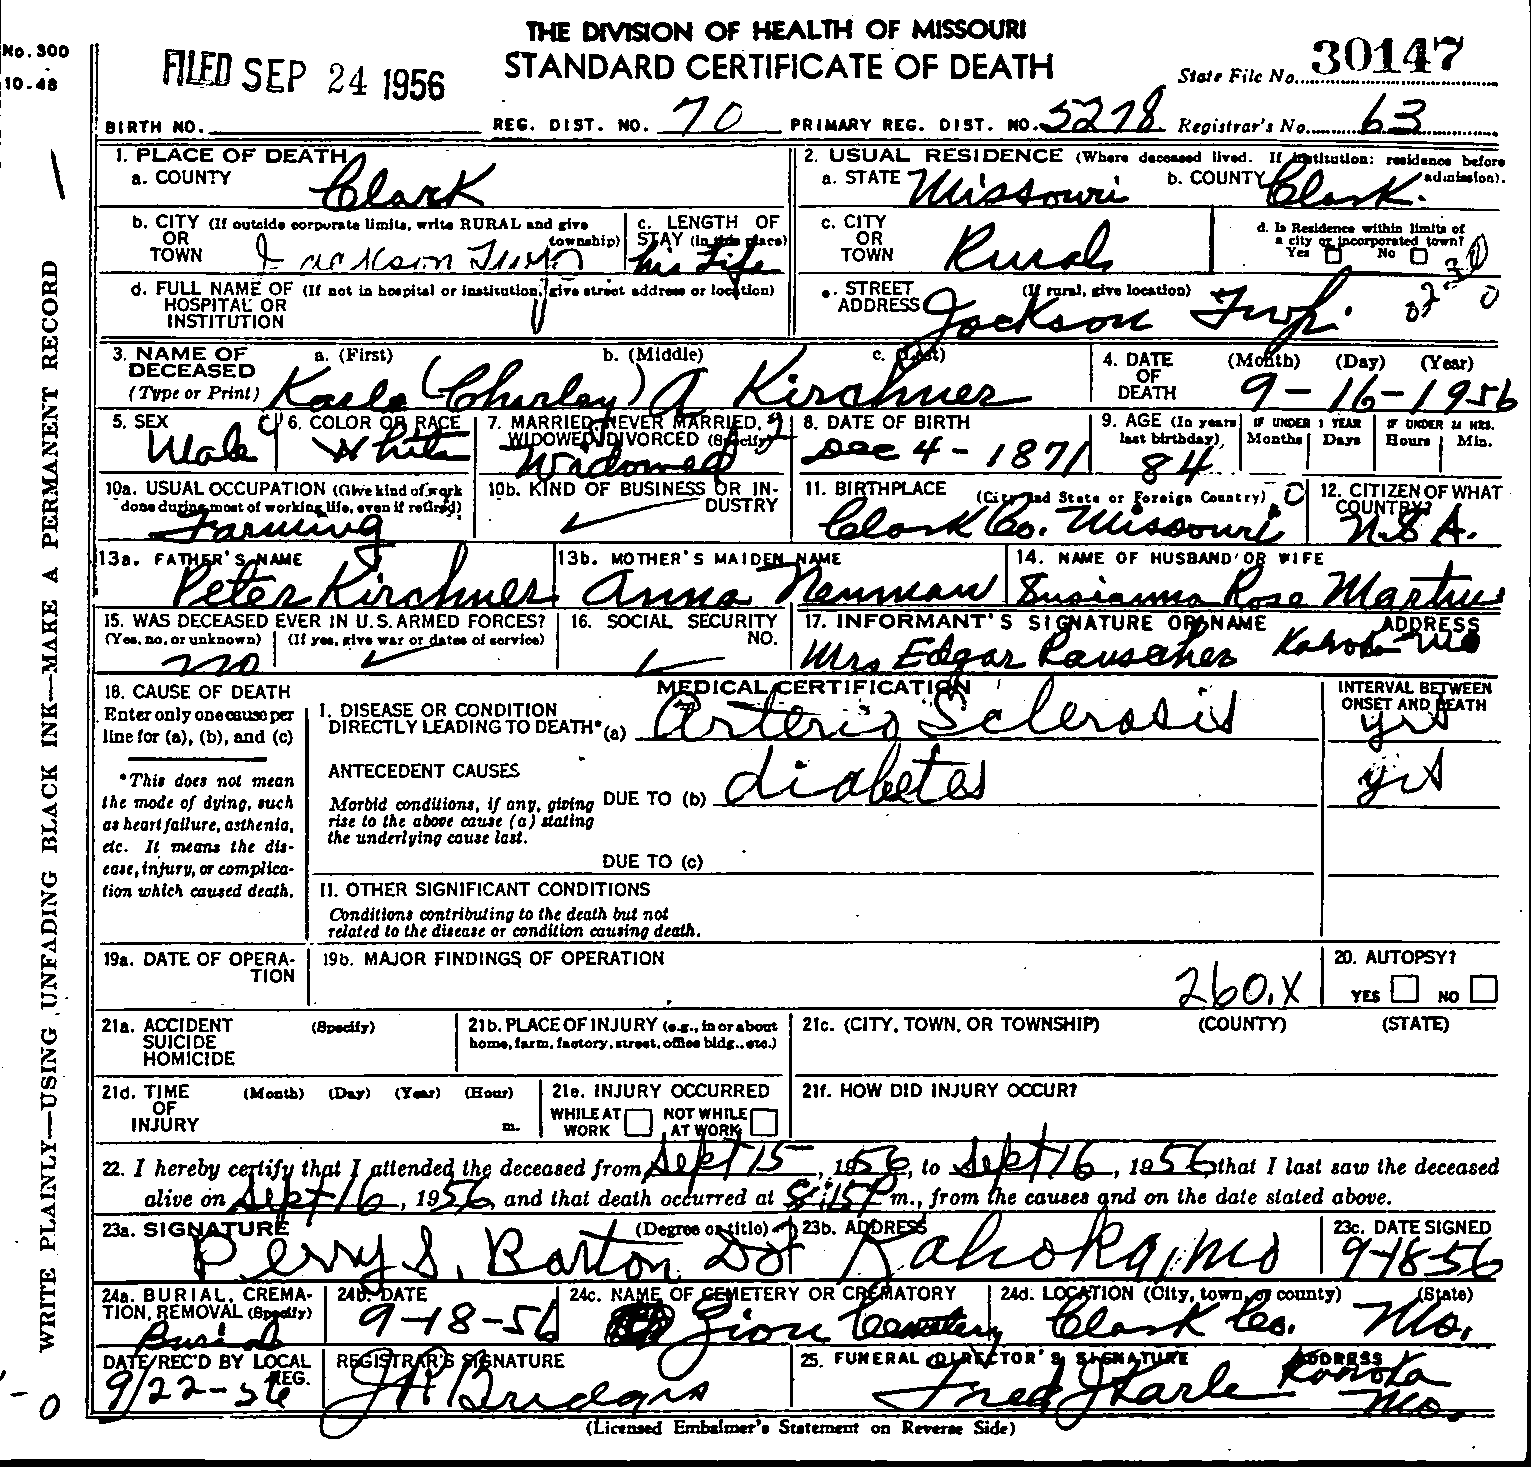 THE DIVISION OF HEALTH OF MISSOURI
STANDARD CERTIFICATE OF DEATH
No. 300
10-48
FILED SEP 24 1956
State File No. 30147
BIRTH NO. REG. DIST. NO. 70 PRIMARY REG. DIST. NO. 5278 Registrar's No. 63
WRITE PLAINLY—USING UNFADING BLACK INK—MAKE A PERMANENT RECORD
1. PLACE OF DEATH
a. COUNTY Clark
b. CITY (If outside corporate limits, write RURAL and give township)
OR
TOWN Jackson Twp
c. LENGTH OF STAY (in this place)
his Life
d. FULL NAME OF (If not in hospital or institution, give street address or location)
HOSPITAL OR
INSTITUTION
2. USUAL RESIDENCE (Where deceased lived. If institution: residence before admission).
a. STATE Missouri b. COUNTY Clark.
c. CITY
OR
TOWN Rural
d. Is Residence within limits of
a city or incorporated town?
Yes No
e. STREET (If rural, give location)
ADDRESS Jackson Twp.
3. NAME OF DECEASED
(Type or Print)
a. (First) b. (Middle) c. (Last)
Karle (Charley) A Kirchner
4. DATE OF DEATH (Month) (Day) (Year)
9-16-1956
5. SEX
Male
6. COLOR OR RACE
White
7. MARRIED, NEVER MARRIED,
WIDOWED, DIVORCED (Specify)
Widowed
8. DATE OF BIRTH
Dec 4-1871
9. AGE (In years last birthday)
84
IF UNDER 1 YEAR
Months Days
IF UNDER 24 HRS.
Hours Min.
10a. USUAL OCCUPATION (Give kind of work
done during most of working life, even if retired)
Farming
10b. KIND OF BUSINESS OR INDUSTRY
11. BIRTHPLACE (City and State or Foreign Country)
Clark Co. Missouri
12. CITIZEN OF WHAT COUNTRY?
U.S.A.
13a. FATHER'S NAME
Peter Kirchner
13b. MOTHER'S MAIDEN NAME
Anna Neuman
14. NAME OF HUSBAND OR WIFE
Susianna Rose Martin
15. WAS DECEASED EVER IN U.S. ARMED FORCES?
(Yes, no, or unknown) (If yes, give war or dates of service)
no
16. SOCIAL SECURITY NO.
17. INFORMANT'S SIGNATURE OR NAME ADDRESS
Mrs Edgar Rauscher Kahoka Mo
18. CAUSE OF DEATH
Enter only one cause per
line for (a), (b), and (c)
*This does not mean
the mode of dying, such
as heart failure, asthenia,
etc. It means the disease, injury, or complication which caused death.
MEDICAL CERTIFICATION
I. DISEASE OR CONDITION
DIRECTLY LEADING TO DEATH*(a) Arterio Sclerosis
ANTECEDENT CAUSES
Morbid conditions, if any, giving
rise to the above cause (a) stating
the underlying cause last.
DUE TO (b) diabetes
DUE TO (c)
II. OTHER SIGNIFICANT CONDITIONS
Conditions contributing to the death but not
related to the disease or condition causing death.
INTERVAL BETWEEN
ONSET AND DEATH
yrs
yrs
19a. DATE OF OPERATION
19b. MAJOR FINDINGS OF OPERATION
260.X
20. AUTOPSY?
YES NO
21a. ACCIDENT (Specify)
SUICIDE
HOMICIDE
21b. PLACE OF INJURY (e.g., in or about
home, farm, factory, street, office bldg., etc.)
21c. (CITY, TOWN, OR TOWNSHIP) (COUNTY) (STATE)
21d. TIME (Month) (Day) (Year) (Hour)
OF
INJURY m.
21e. INJURY OCCURRED
WHILE AT WORK NOT WHILE AT WORK
21f. HOW DID INJURY OCCUR?
22. I hereby certify that I attended the deceased from Sept 15, 1956, to Sept 16, 1956, that I last saw the deceased
alive on Sept 16, 1956, and that death occurred at 8:15P m., from the causes and on the date stated above.
23a. SIGNATURE (Degree or title)
Perry S. Barton DO
23b. ADDRESS
Kahoka, Mo
23c. DATE SIGNED
9-18-56
24a. BURIAL, CREMATION, REMOVAL (Specify)
Burial
24b. DATE
9-18-56
24c. NAME OF CEMETERY OR CREMATORY
Zion Cemetery
24d. LOCATION (City, town, or county) (State)
Clark Co. Mo.
DATE REC'D BY LOCAL REG.
9/22-56
REGISTRAR'S SIGNATURE
J R Bridges
25. FUNERAL DIRECTOR'S SIGNATURE ADDRESS
Fred J Karle Kahoka Mo.
(Licensed Embalmer's Statement on Reverse Side)